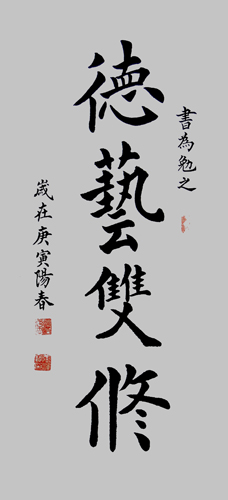 書為勉之
德藝雙修
歲在庚寅陽春